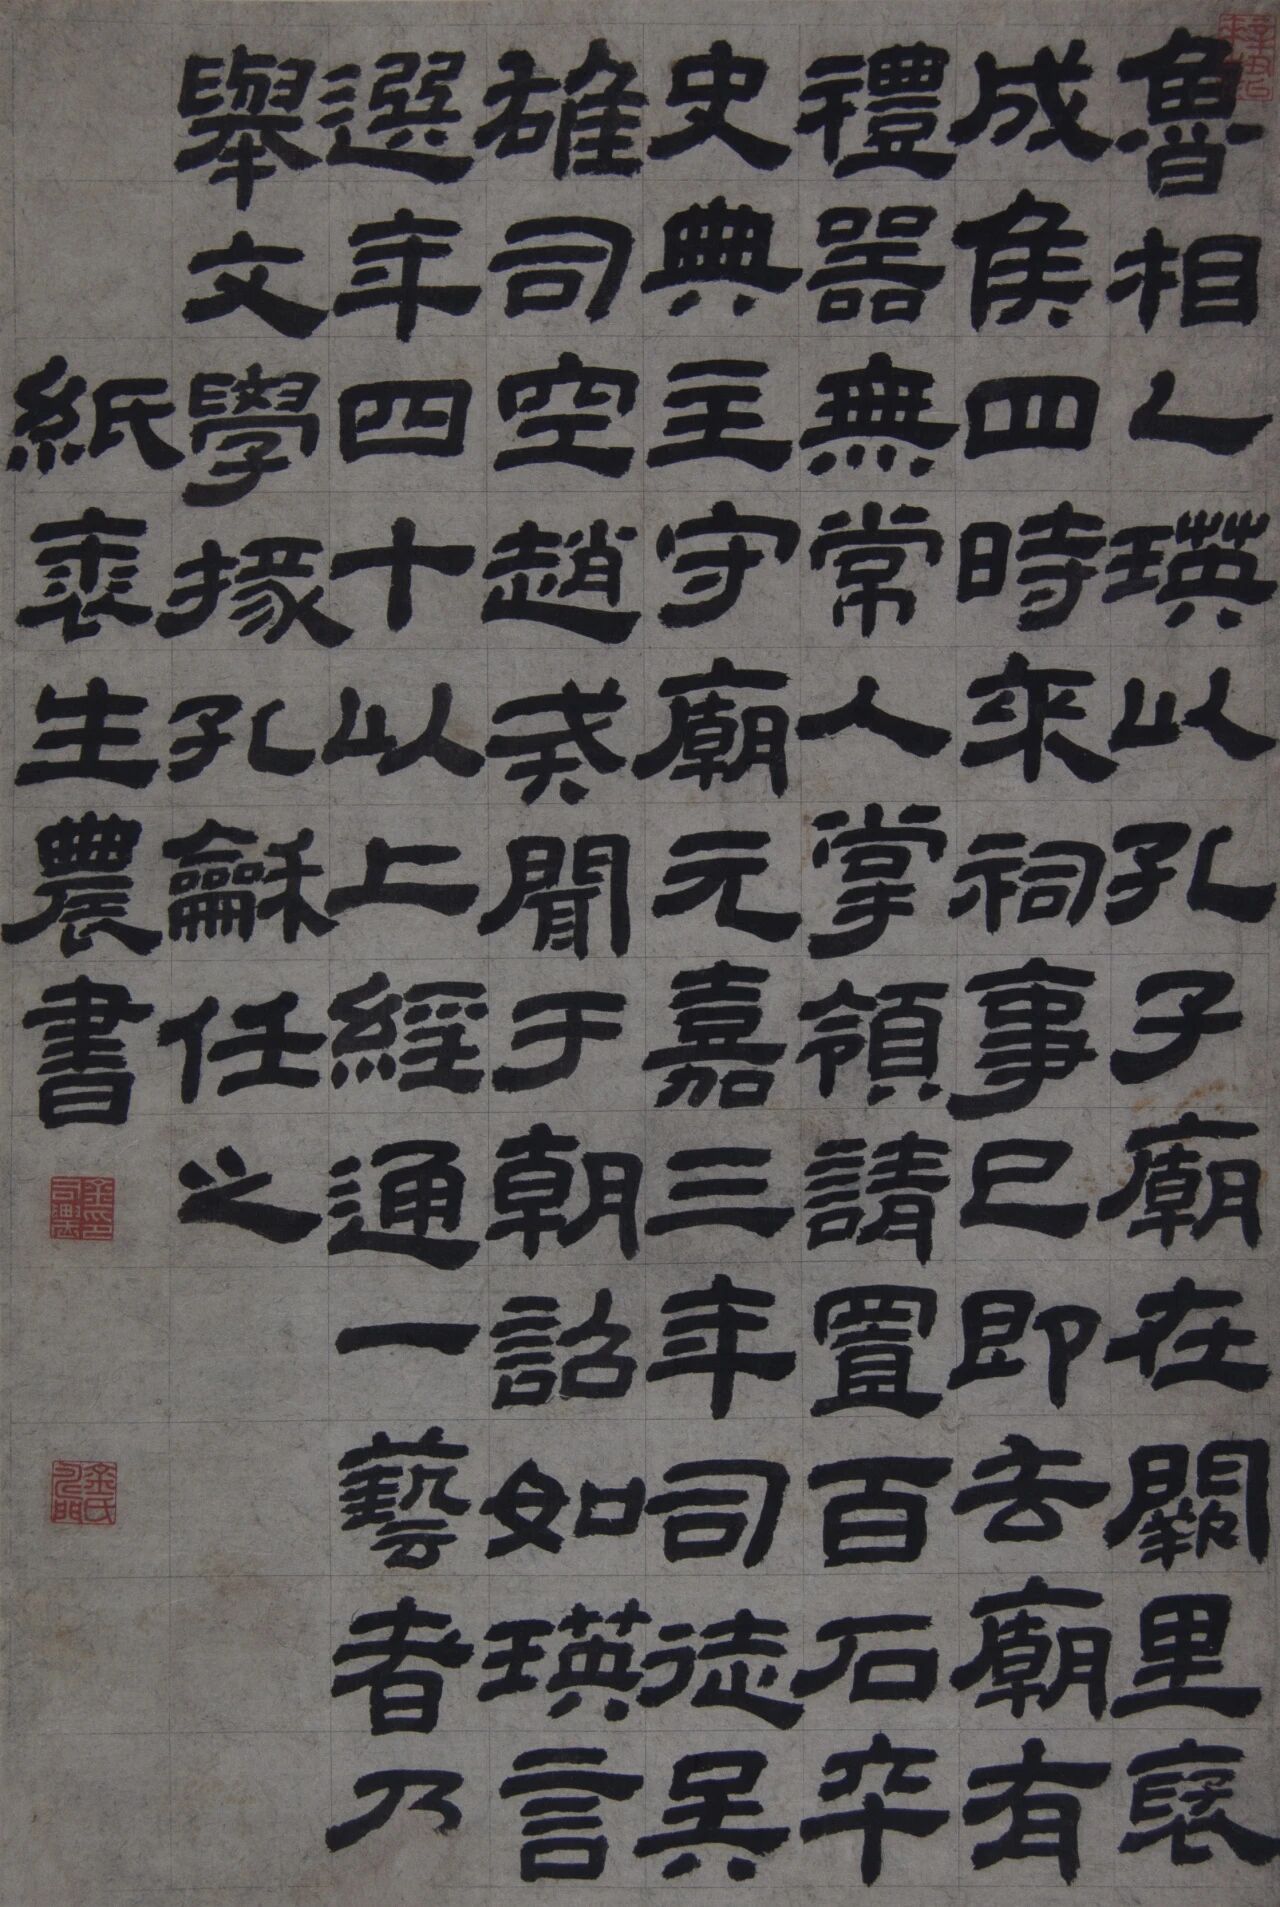 魯相乙瑛以孔子廟在闕里褒
成侯四時來祠事已即去廟有
禮器無常人掌領請置百石卒
史典主守廟元嘉三年司徒吳
雄司空趙戒聞于朝詔如瑛言
選年四十以上經通一藝者乃
舉文學掾孔龢任之
紙裘生農書